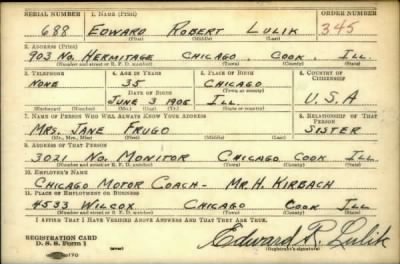 SERIAL NUMBER 1. NAME (Print) ORDER NUMBER
688 EDWARD ROBERT LULIK 345
(First) (Middle) (Last)
2. ADDRESS (Print)
903 NO. HERMITAGE CHICAGO COOK ILL.
(Number and street or R. F. D. number) (Town) (County) (State)
3. TELEPHONE 4. AGE IN YEARS 5. PLACE OF BIRTH 6. COUNTRY OF CITIZENSHIP
NONE 35 CHICAGO
DATE OF BIRTH (Town or county)
JUNE 3 1906 ILL. U.S.A
(Exchange) (Number) (Mo.) (Day) (Yr.) (State or country)
7. NAME OF PERSON WHO WILL ALWAYS KNOW YOUR ADDRESS 8. RELATIONSHIP OF THAT PERSON
MRS. JANE FRUGO SISTER
(Mr., Mrs., Miss) (First) (Middle) (Last)
9. ADDRESS OF THAT PERSON
3021 NO. MONITOR CHICAGO COOK ILL
(Number and street or R. F. D. number) (Town) (County) (State)
10. EMPLOYER'S NAME
CHICAGO MOTOR COACH - MR. H. KIRBACH
11. PLACE OF EMPLOYMENT OR BUSINESS
4533 WILCOX CHICAGO COOK ILL
(Number and street or R. F. D. number) (Town) (County) (State)
I AFFIRM THAT I HAVE VERIFIED ABOVE ANSWERS AND THAT THEY ARE TRUE.
REGISTRATION CARD
D. S. S. Form 1 Edward R. Lulik